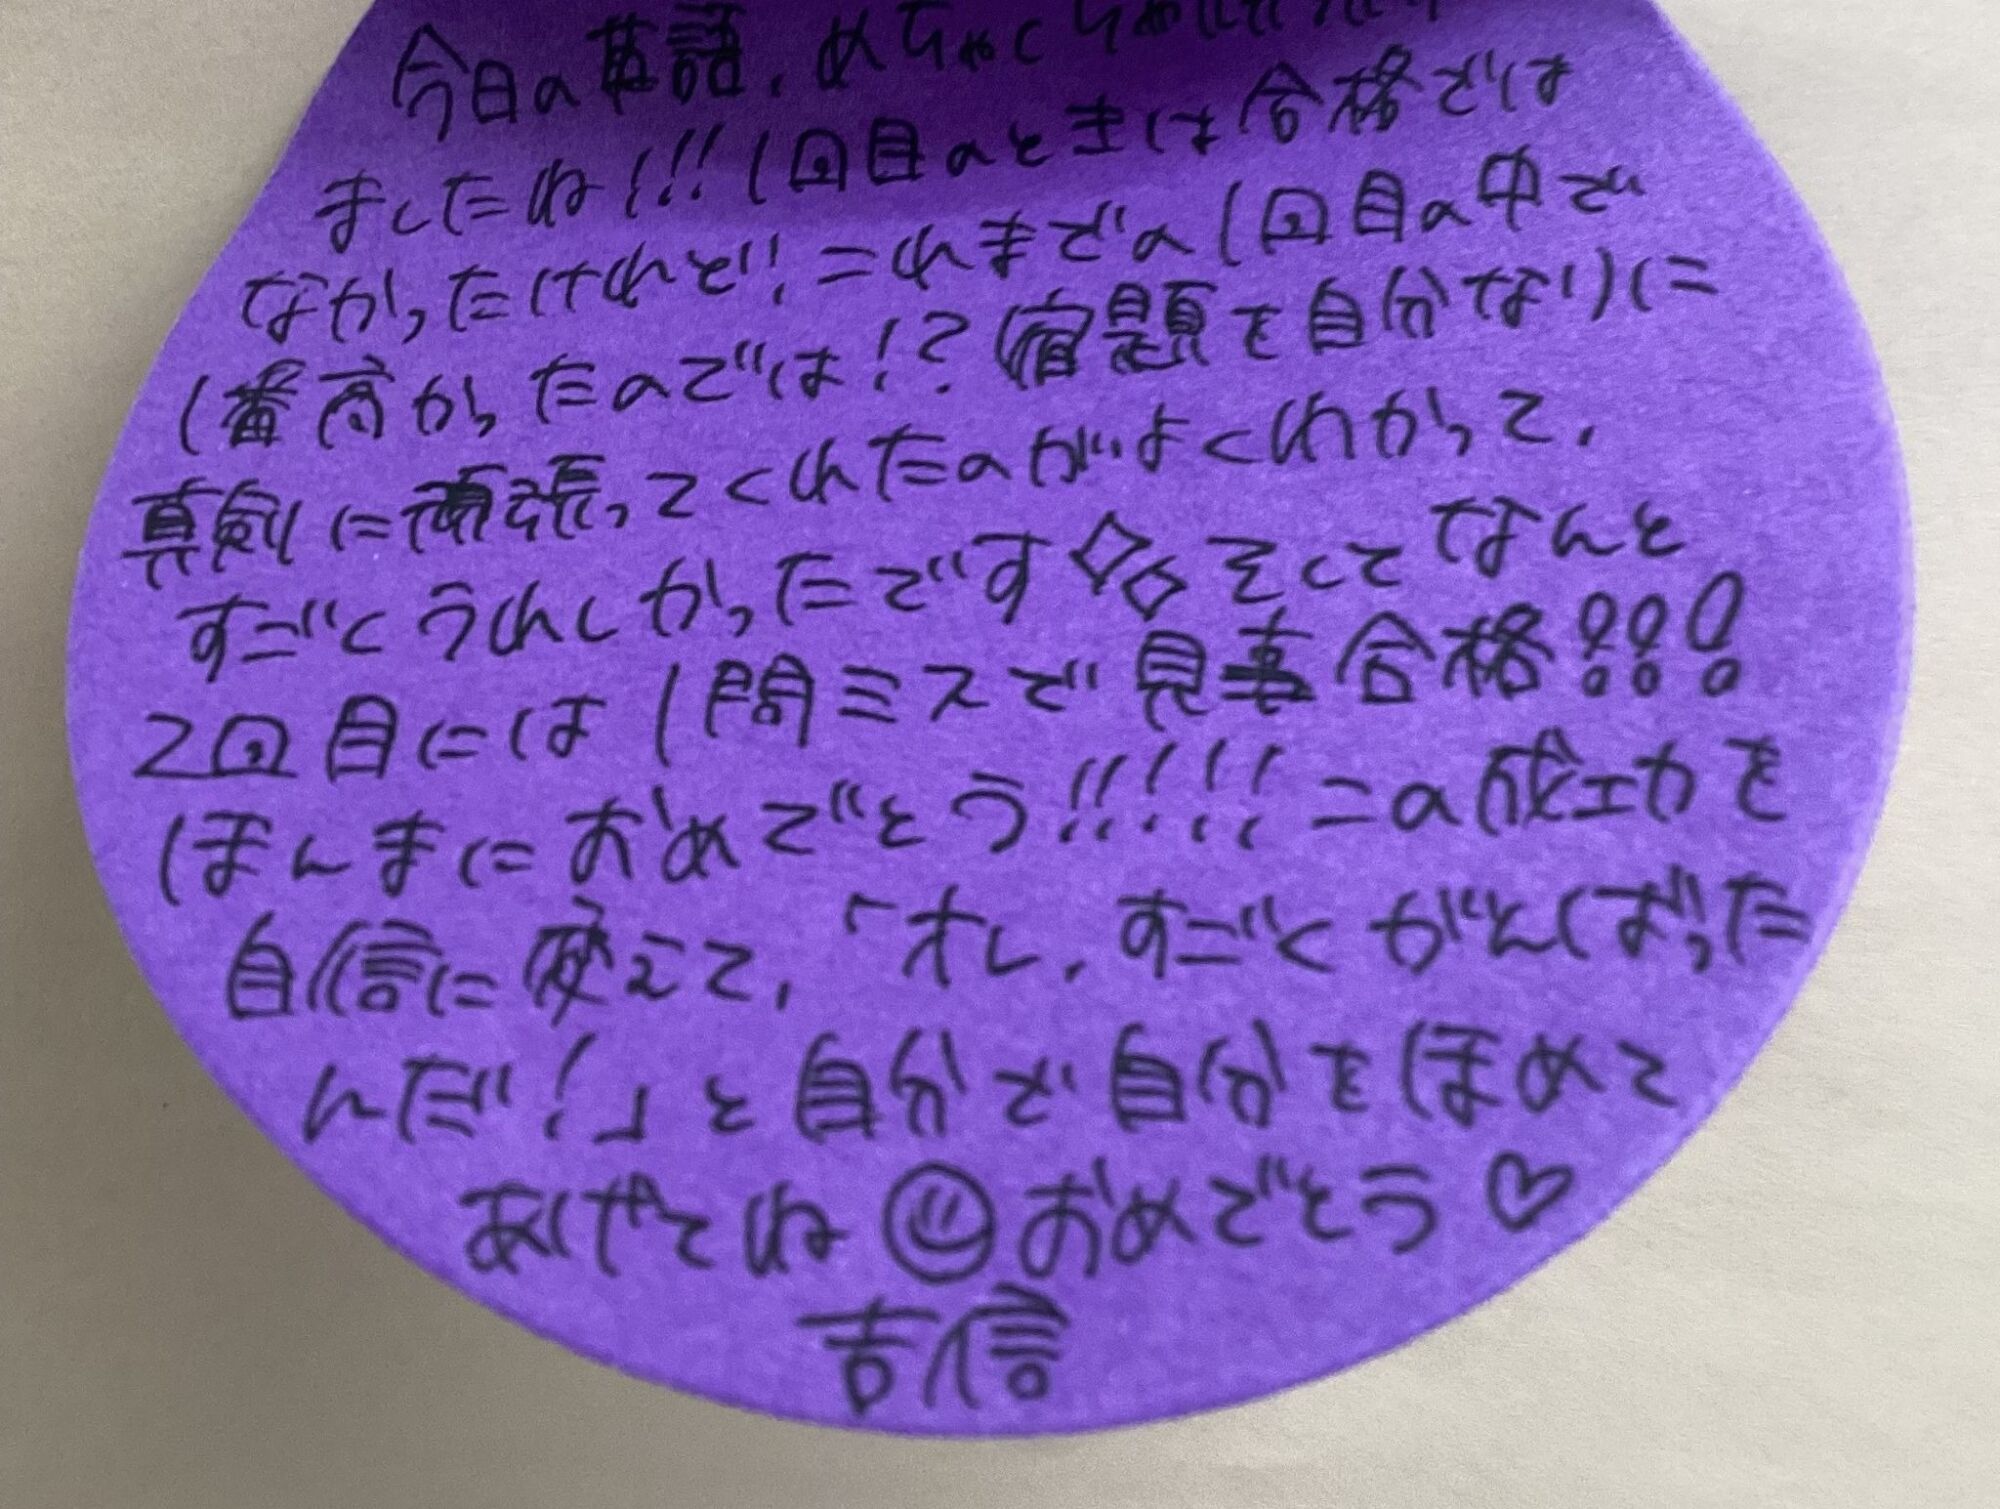 今日の英語、めちゃくちゃ
ましたね!!! 1回目のときは合格では
なかったけれど! これまでの1回目の中で
1番高かったのでは!? 宿題を自分なりに
真剣に頑張ってくれたのがよくわかって、
すごくうれしかったです そしてなんと
2回目には1問ミスで見事合格!!!
ほんまにおめでとう!!!!! この成功を
自信に変えて、「オレ、すごくがんばった
んだ!」と自分で自分をほめて
あげてね おめでとう♡
吉信